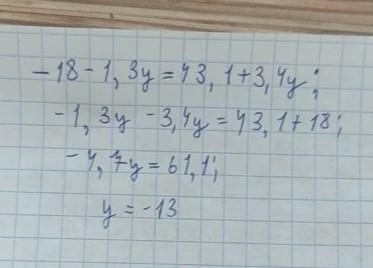 -18-1,3y=43,1+3,4y;
-1,3y-3,4y=43,1+18;
-4,7y=61,1;
y=-13